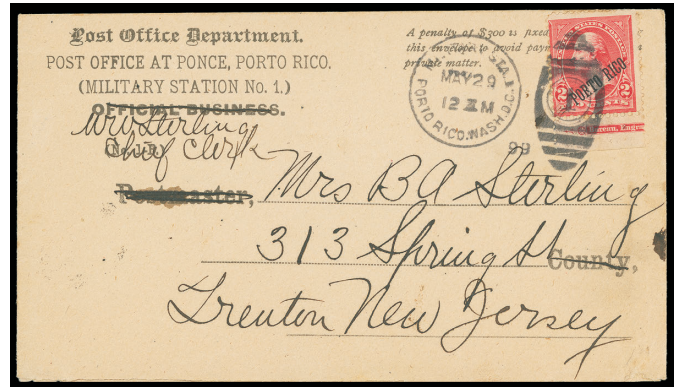 Post Office Department.
POST OFFICE AT PONCE, PORTO RICO.
(MILITARY STATION No. 1.)
OFFICIAL BUSINESS.
A penalty of $300 is fixed
this envelope to avoid paym
private matter.
STA. 1
MAY 29
12 M
PORTO RICO. WASH. D.C.
99
PORTO RICO
2 CENTS 2
Bureau, Engra
WW Sterling
Chief Clerk
Postmaster,
Mrs BA Sterling
313 Spring St
County,
Trenton New Jersey